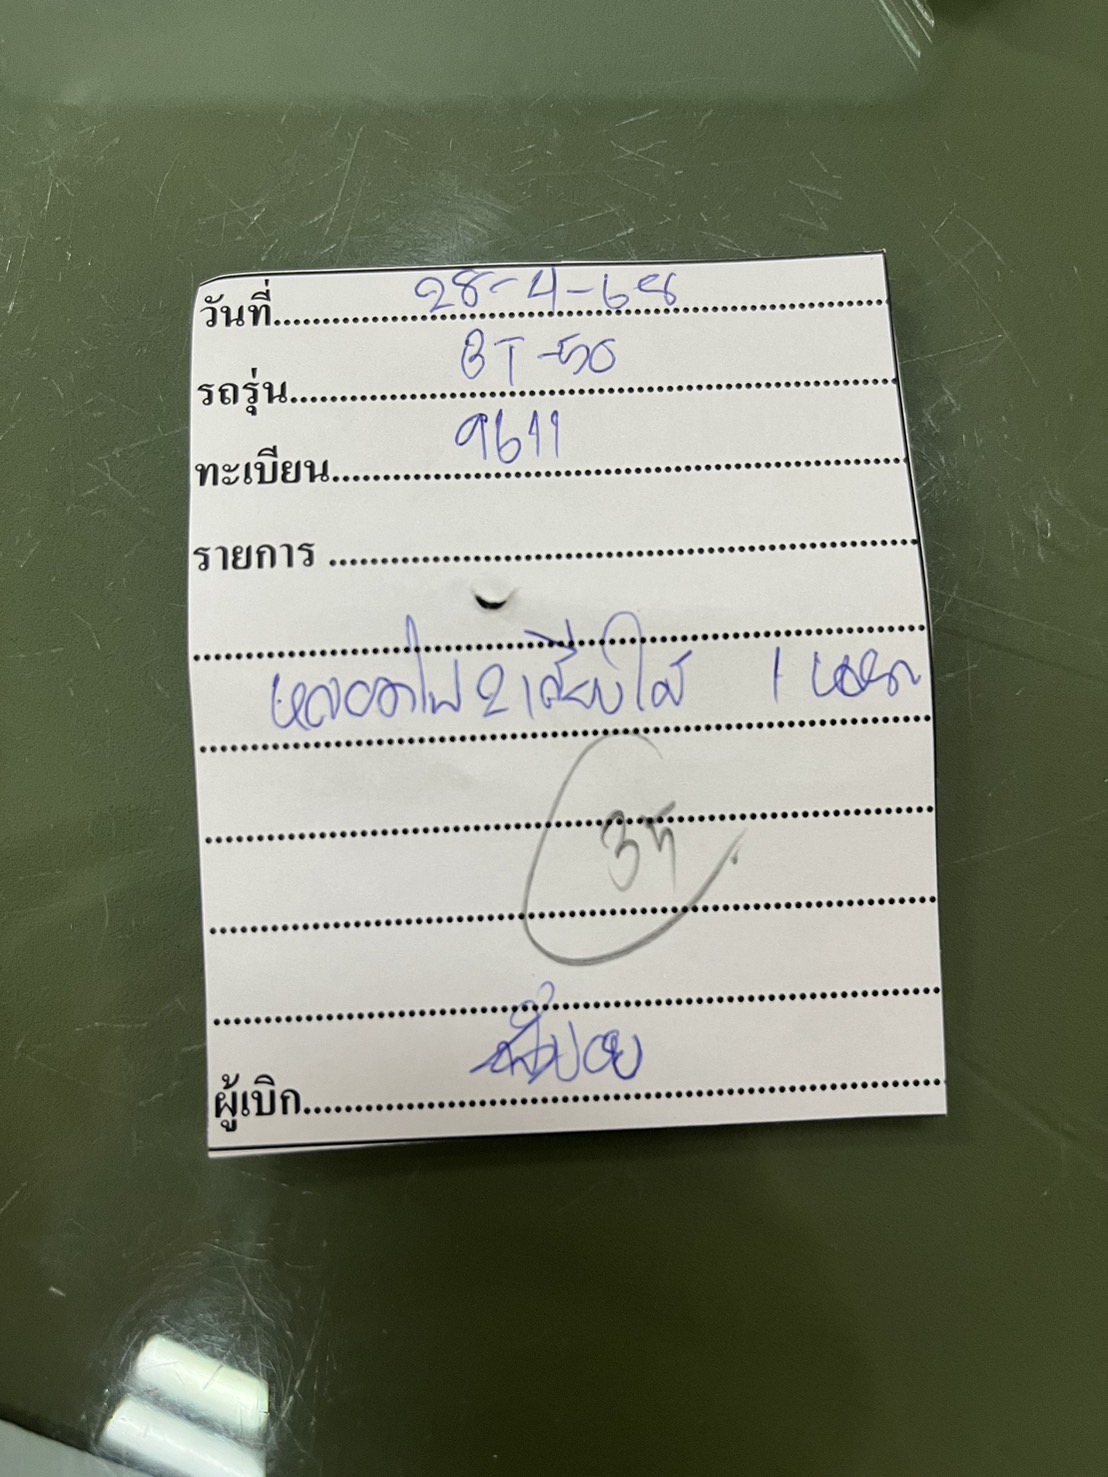 วันที่ 28-4-68
รถรุ่น BT-50
ทะเบียน 9611
รายการ
หลอดไฟ 2 เสียบใส 1 หลอด
ผู้เบิก